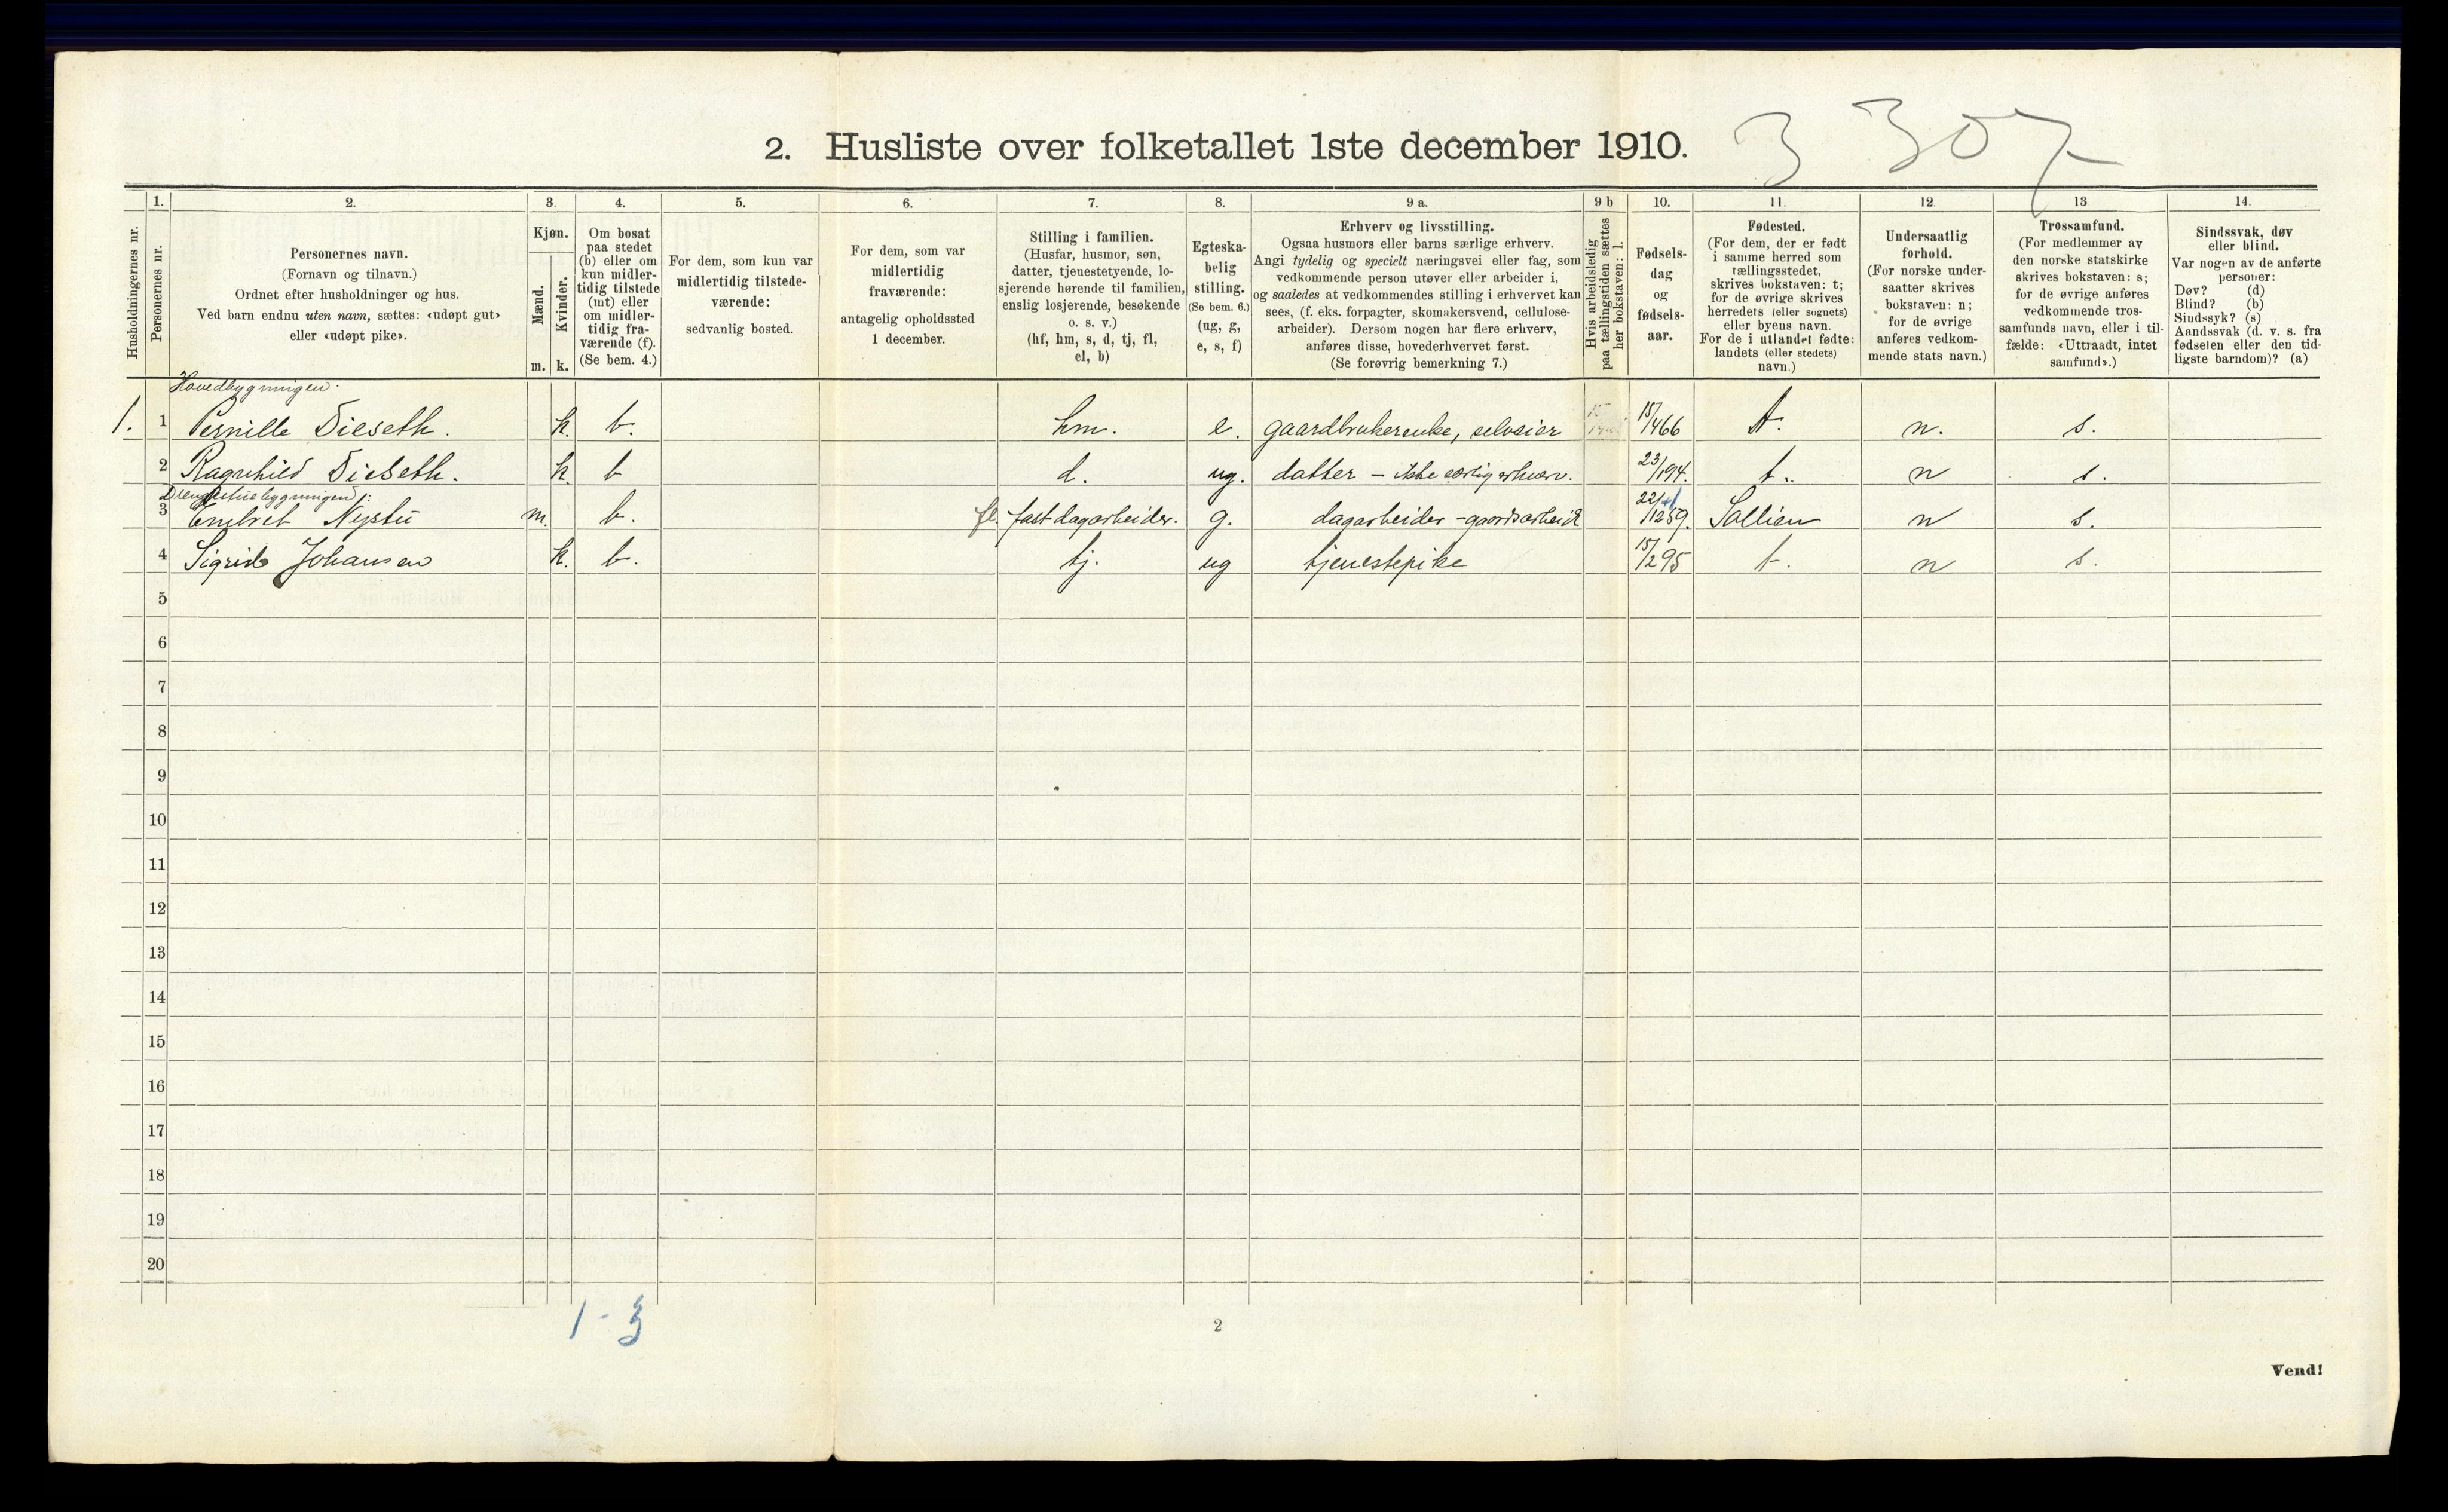 2. Husliste over folketallet 1ste december 1910.
3 307
Husholdningernes nr.
1.
Personernes nr.
2.
Personernes navn.
(Fornavn og tilnavn.)
Ordnet efter husholdninger og hus.
Ved barn endnu uten navn, sættes: «udøpt gut»
eller «udøpt pike».
3.
Kjøn.
Mænd.
Kvinder.
m. k.
4.
Om bosat
paa stedet
(b) eller om
kun midler-
tidig tilstede
(mt) eller
om midler-
tidig fra-
værende (f).
(Se bem. 4.)
5.
For dem, som kun var
midlertidig tilstede-
værende:
sedvanlig bosted.
6.
For dem, som var
midlertidig
fraværende:
antagelig opholdssted
1 december.
7.
Stilling i familien.
(Husfar, husmor, søn,
datter, tjenestetyende, lo-
sjerende hørende til familien,
enslig losjerende, besøkende
o. s. v.)
(hf, hm, s, d, tj, fl,
el, b)
8.
Egteska-
belig
stilling.
(Se bem. 6.)
(ug, g,
e, s, f)
9 a.
Erhverv og livsstilling.
Ogsaa husmors eller barns særlige erhverv.
Angi tydelig og specielt næringsvei eller fag, som
vedkommende person utøver eller arbeider i,
og saaledes at vedkommendes stilling i erhvervet kan
sees, (f. eks. forpagter, skomakersvend, cellulose-
arbeider). Dersom nogen har flere erhverv,
anføres disse, hovederhvervet først.
(Se forøvrig bemerkning 7.)
9 b
Hvis arbeidsledig
paa tællingstiden sættes
her bokstaven: l.
10.
Fødsels-
dag
og
fødsels-
aar.
11.
Fødested.
(For dem, der er født
i samme herred som
tællingsstedet,
skrives bokstaven: t;
for de øvrige skrives
herredets (eller sognets)
eller byens navn.
For de i utlandet fødte:
landets (eller stedets)
navn.)
12.
Undersaatlig
forhold.
(For norske under-
saatter skrives
bokstaven: n;
for de øvrige
anføres vedkom-
mende stats navn.)
13
Trossamfund.
(For medlemmer av
den norske statskirke
skrives bokstaven: s;
for de øvrige anføres
vedkommende tros-
samfunds navn, eller i til-
fælde: «Uttraadt, intet
samfund».)
14.
Sindssvak, døv
eller blind.
Var nogen av de anførte
personer:
Døv? (d)
Blind? (b)
Sindssyk? (s)
Aandssvak (d. v. s. fra
fødselen eller den tid-
ligste barndom)? (a)
Hovedbygningen.
1. 1 Pernille Dieseth. k. b. hm. e. gaardbrukerenke, selveier 15/4 66 t. n. s.
2 Ragnhild Dieseth. k. b d. ug. datter – ikke særlig erhverv. 23/1 94. t. n s.
Drengestuebygningen:
3 Embret Nystu m. b. fl. fast dagarbeider. g. dagarbeider – gaardsarbeid 22/12 59. Sollien n s.
4 Sigrid Johansen k. b. tj. ug tjenestepike 15/2 95 t. n s.
5
6
7
8
9
10
11
12
13
14
15
16
17
18
19
20
1 - 3
2
Vend!